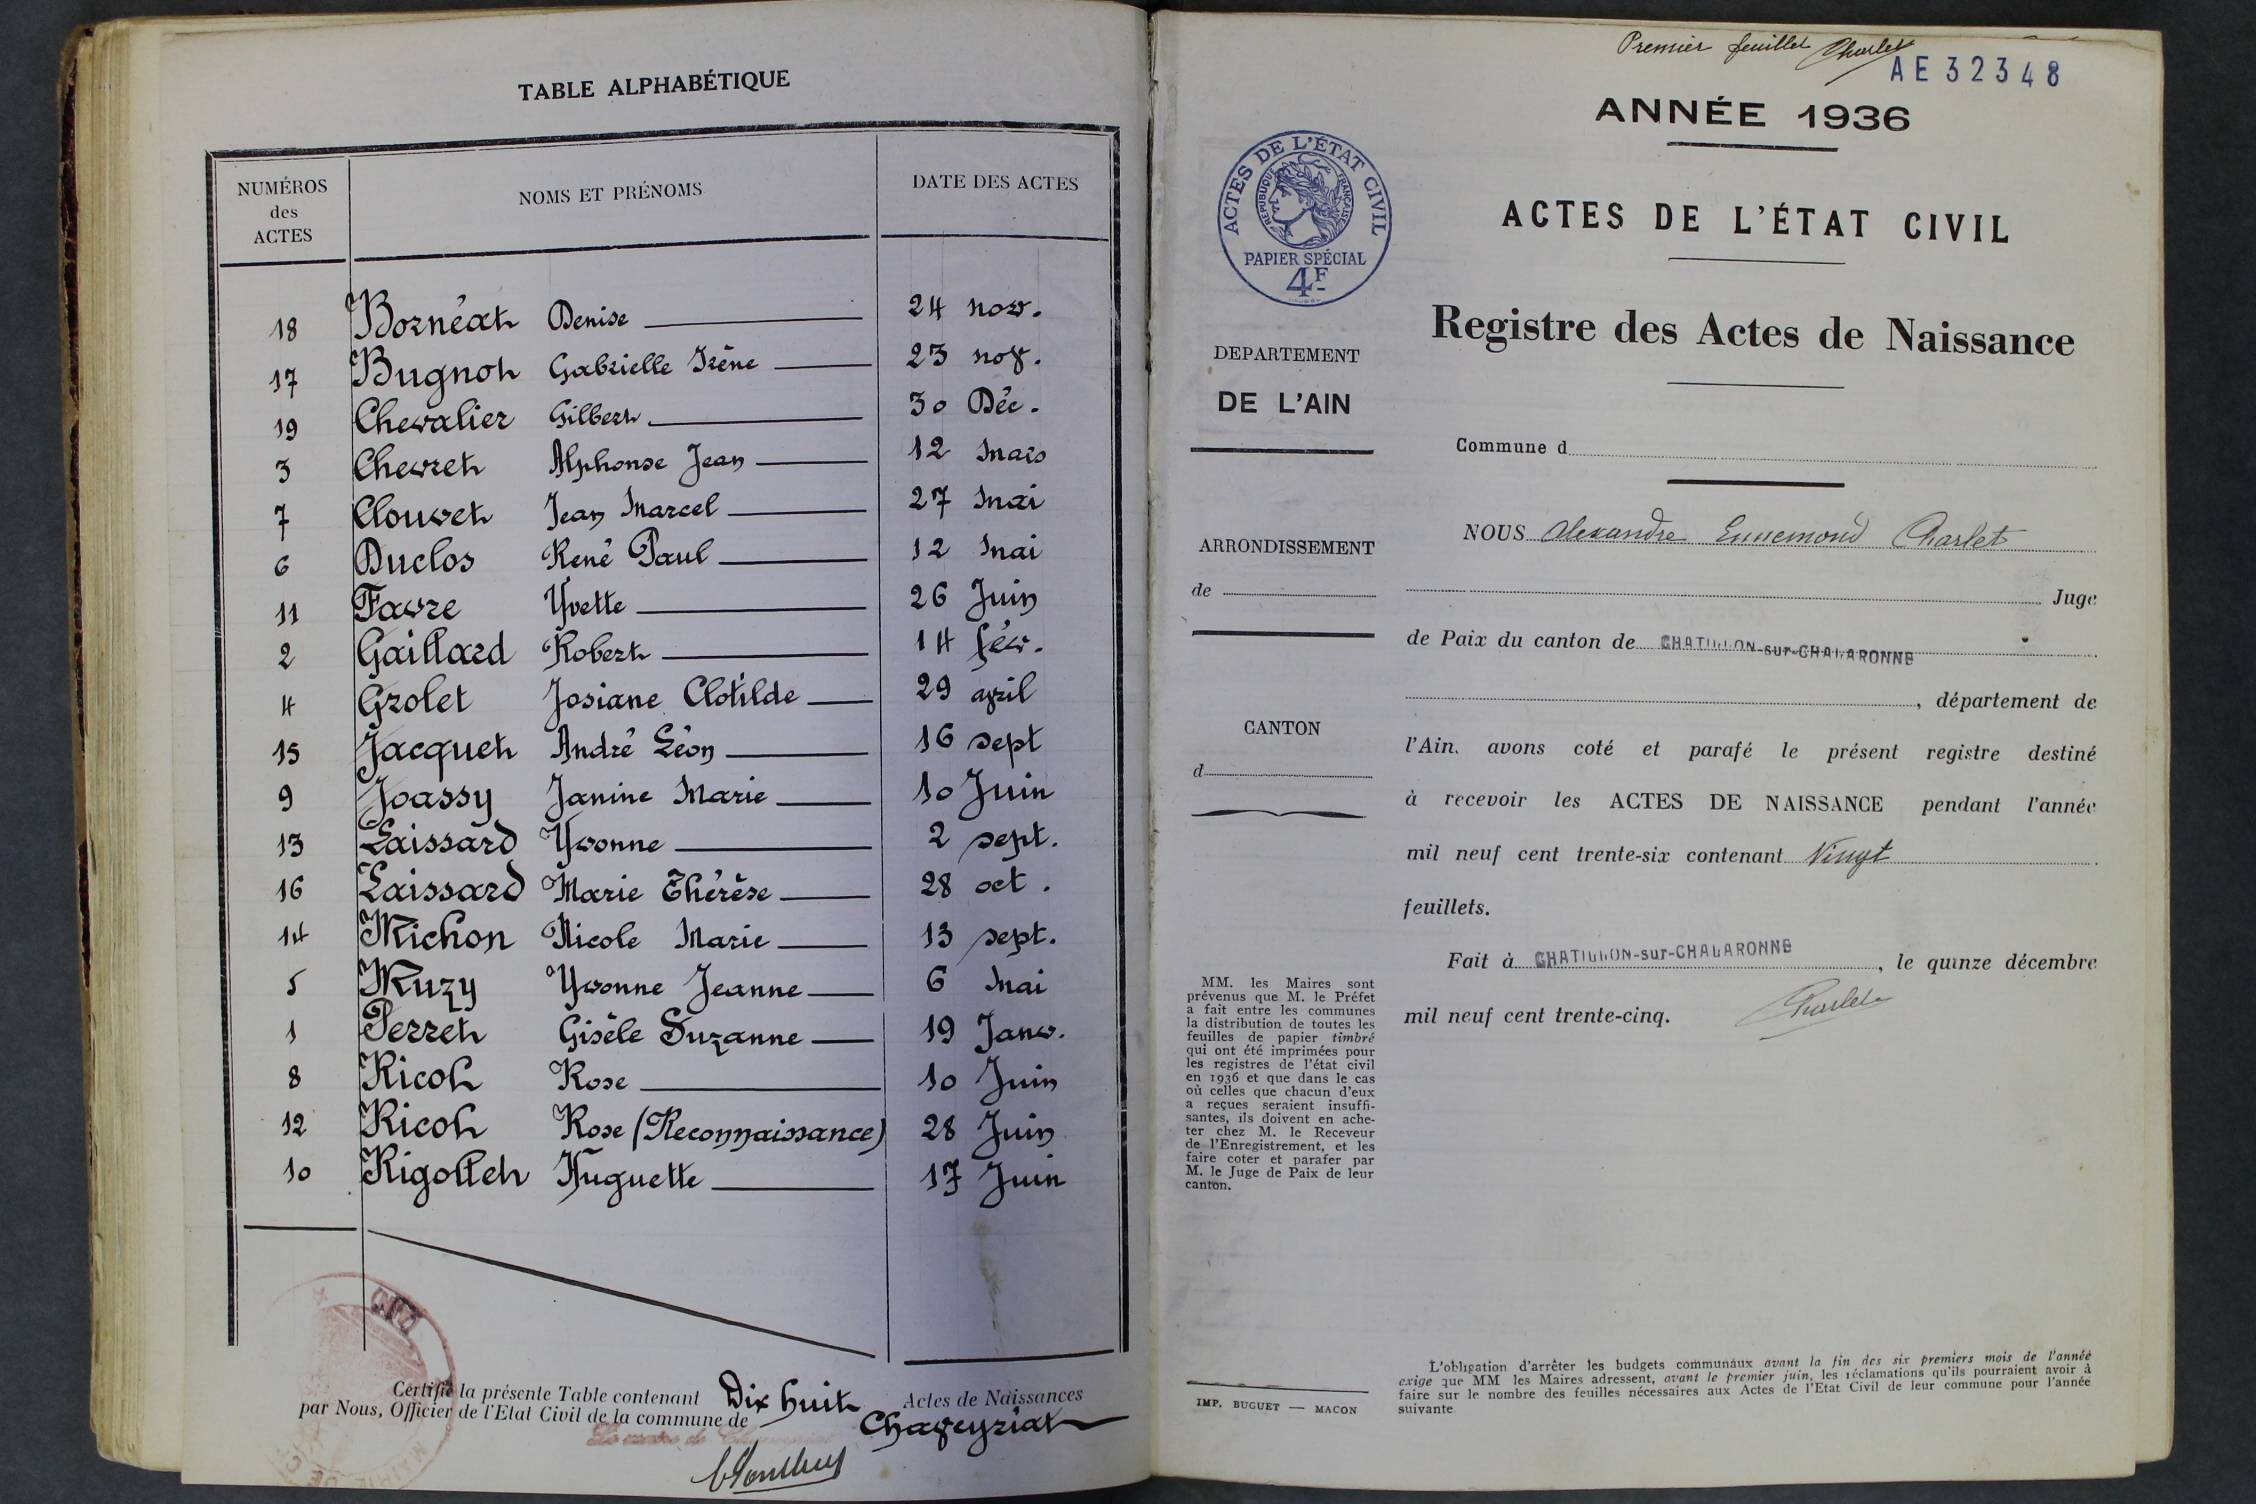 TABLE ALPHABÉTIQUE
NUMÉROS des ACTES NOMS ET PRÉNOMS DATE DES ACTES
18 Bornéat Denise 24 nov.
17 Bugnot Gabrielle Irène 23 nov.
19 Chevalier Gilbert 30 Déc.
3 Chevret Alphonse Jean 12 Mars
7 Clouvet Jean Marcel 27 Mai
6 Duclos René Paul 12 Mai
11 Favre Yvette 26 Juin
2 Gaillard Robert 14 fév.
4 Grolet Josiane Clotilde 29 avril
15 Jacquet André Léon 16 sept
9 Joassy Janine Marie 10 Juin
13 Laissard Yvonne 2 sept.
16 Laissard Marie Thérèse 28 oct.
14 Michon Nicole Marie 13 sept.
5 Muzy Yvonne Jeanne 6 Mai
1 Perret Gisèle Suzanne 19 Janv.
8 Ricol Rose 10 Juin
12 Ricol Rose (Reconnaissance) 28 Juin
10 Rigollet Huguette 17 Juin
Certifié la présente Table contenant Dix huit Actes de Naissances
par Nous, Officier de l'Etat Civil de la commune de Chaveyriat
Premier feuillet Charlet
AE32348
ANNÉE 1936
ACTES DE L'ÉTAT CIVIL
RÉPUBLIQUE FRANÇAISE
PAPIER SPÉCIAL
4F
ACTES DE L'ÉTAT CIVIL
Registre des Actes de Naissance
DEPARTEMENT
DE L'AIN
Commune d
NOUS Alexandre Ennemond Charlet
ARRONDISSEMENT
de
Juge
de Paix du canton de CHATILLON-sur-CHALARONNE
, département de
CANTON
d
l'Ain, avons coté et parafé le présent registre destiné
à recevoir les ACTES DE NAISSANCE pendant l'année
mil neuf cent trente-six contenant Vingt
feuillets.
Fait à CHATILLON-sur-CHALARONNE, le quinze décembre
mil neuf cent trente-cinq. Charlet
MM. les Maires sont
prévenus que M. le Préfet
a fait entre les communes
la distribution de toutes les
feuilles de papier timbré
qui ont été imprimées pour
les registres de l'état civil
en 1936 et que dans le cas
où celles que chacun d'eux
a reçues seraient insuffi-
santes, ils doivent en ache-
ter chez M. le Receveur
de l'Enregistrement, et les
faire coter et parafer par
M. le Juge de Paix de leur
canton.
IMP. BUGUET — MACON
L'obligation d'arrêter les budgets communaux avant la fin des six premiers mois de l'année
exige que MM les Maires adressent, avant le premier juin, les réclamations qu'ils pourraient avoir à
faire sur le nombre des feuilles nécessaires aux Actes de l'Etat Civil de leur commune pour l'année
suivante